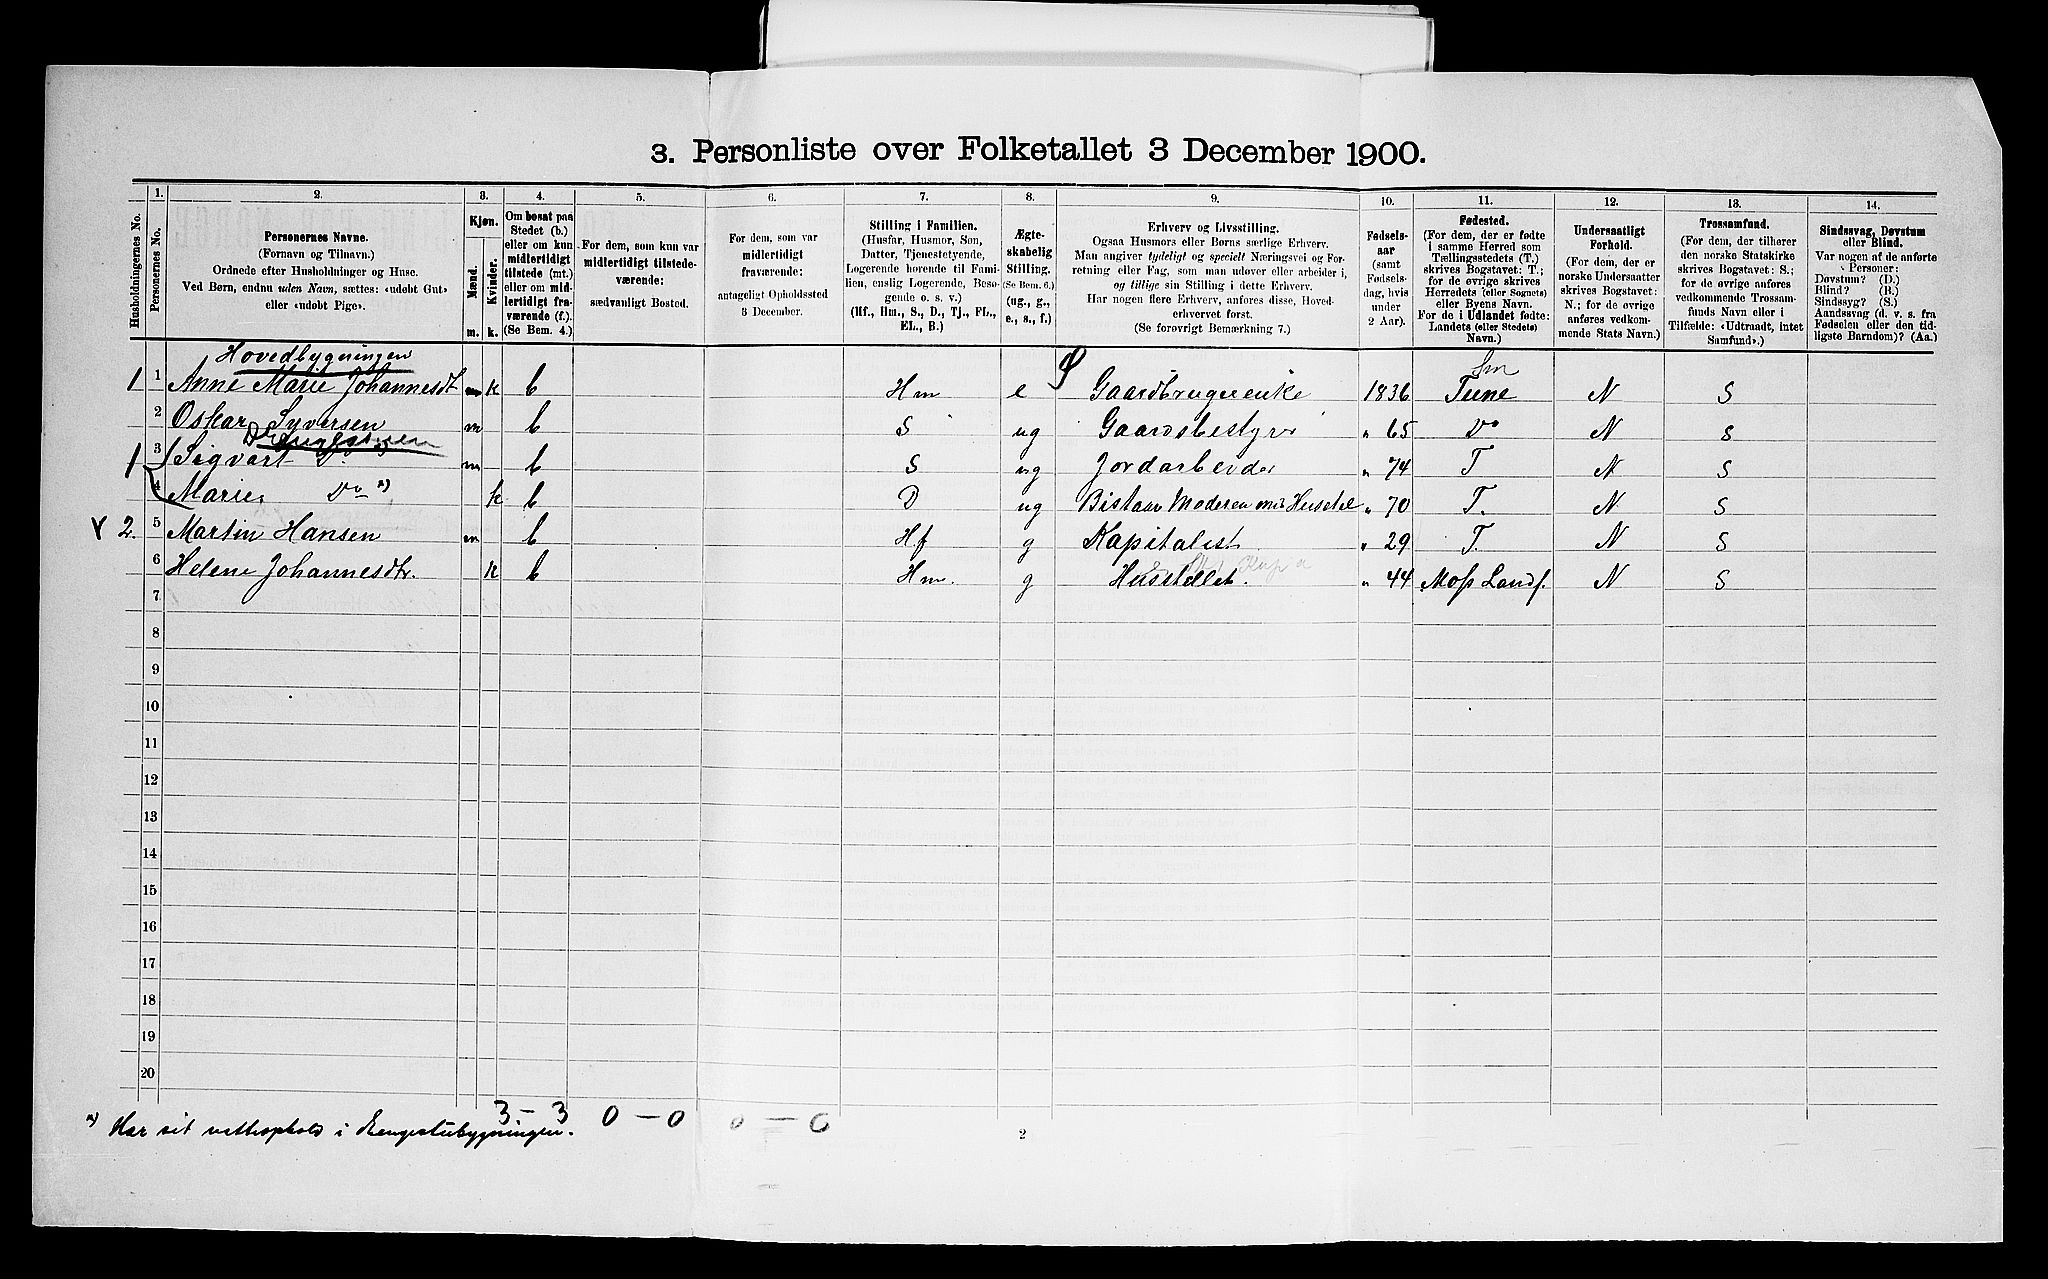 3. Personliste over Folketallet 3 December 1900.
Husholdningernes No.
1.
Personernes No.
2.
Personernes Navne.
(Fornavn og Tilnavn.)
Ordnede efter Husholdninger og Huse.
Ved Børn, endnu uden Navn, sættes: «udøbt Gut»
eller «udøbt Pige».
3.
Kjøn.
Mænd.
Kvinder.
m. k.
4.
Om bosat paa
Stedet (b.)
eller om kun
midlertidigt
tilstede (mt.)
eller om mid-
lertidigt fra-
værende (f.).
(Se Bem. 4.)
5.
For dem, som kun var
midlertidigt tilstede-
værende:
sædvanligt Bosted.
6.
For dem, som var
midlertidigt
fraværende:
antageligt Opholdssted
3 December.
7.
Stilling i Familien.
(Husfar, Husmor, Søn,
Datter, Tjenestetyende,
Logerende hørende til Fami-
lien, enslig Logerende, Besø-
gende o. s. v.)
(Hf., Hm., S., D., Tj., FL.,
EL., B.)
8.
Ægte-
skabelig
Stilling.
(Se Bem. 6.)
(ug., g.,
e., s., f.)
9.
Erhverv og Livsstilling.
Ogsaa Husmors eller Børns særlige Erhverv.
Man angiver tydeligt og specielt Næringsvei og For-
retning eller Fag, som man udøver eller arbeider i,
og tillige sin Stilling i dette Erhverv.
Har nogen flere Erhverv, anføres disse, Hoved-
erhvervet først.
(Se forøvrigt Bemærkning 7.)
10.
Fødsels-
aar
(samt
Fødsels-
dag, hvis
under
2 Aar).
11.
Fødested.
(For dem, der er fødte
i samme Herred som
Tællingsstedets (T.)
skrives Bogstavet: T.;
for de øvrige skrives
Herredets (eller Sognets)
eller Byens Navn.
For de i Udlandet fødte:
Landets (eller Stedets)
Navn.)
12.
Undersaatligt
Forhold.
(For dem, der er
norske Undersaatter
skrives Bogstavet:
N.; for de øvrige
anføres vedkom-
mende Stats Navn.)
13.
Trossamfund.
(For dem, der tilhører
den norske Statskirke
skrives Bogstavet: S.;
for de øvrige anføres
vedkommende Trossam-
funds Navn eller i
Tilfælde: «Udtraadt, intet
Samfund».)
14.
Sindssvag, Døvstum
eller Blind.
Var nogen af de anførte
Personer:
Døvstum? (D.)
Blind? (B.)
Sindssyg? (S.)
Aandssvag (d. v. s. fra
Fødselen eller den tid-
ligste Barndom)? (Aa.)
Hovedbygningen
1 1 Anne Marie Johannesdt m k b Hm e Gaardbrugerenke 1836 Tune N S
2 Oskar Syversen m b S ug Gaardsbestyrer " 65 Do N S
1 3 Sigvart Do m b S ug Jordarbeider " 74 T N S
4 Marie Do *) k b D ug Bistaar Moderen med Husstel " 70 T. N S
2. 5 Martin Hansen m b Hf g Kapitalist " 29 T. N S
6 Helene Johannesdtr. k b Hm. g Husstellet. " 44 Moss Landf. N S
7
8
9
10
11
12
13
14
15
16
17
18
19
20
3 – 3 0 – 0 0 – 0
*) Har sit natteophold i Drengestubygningen.
2